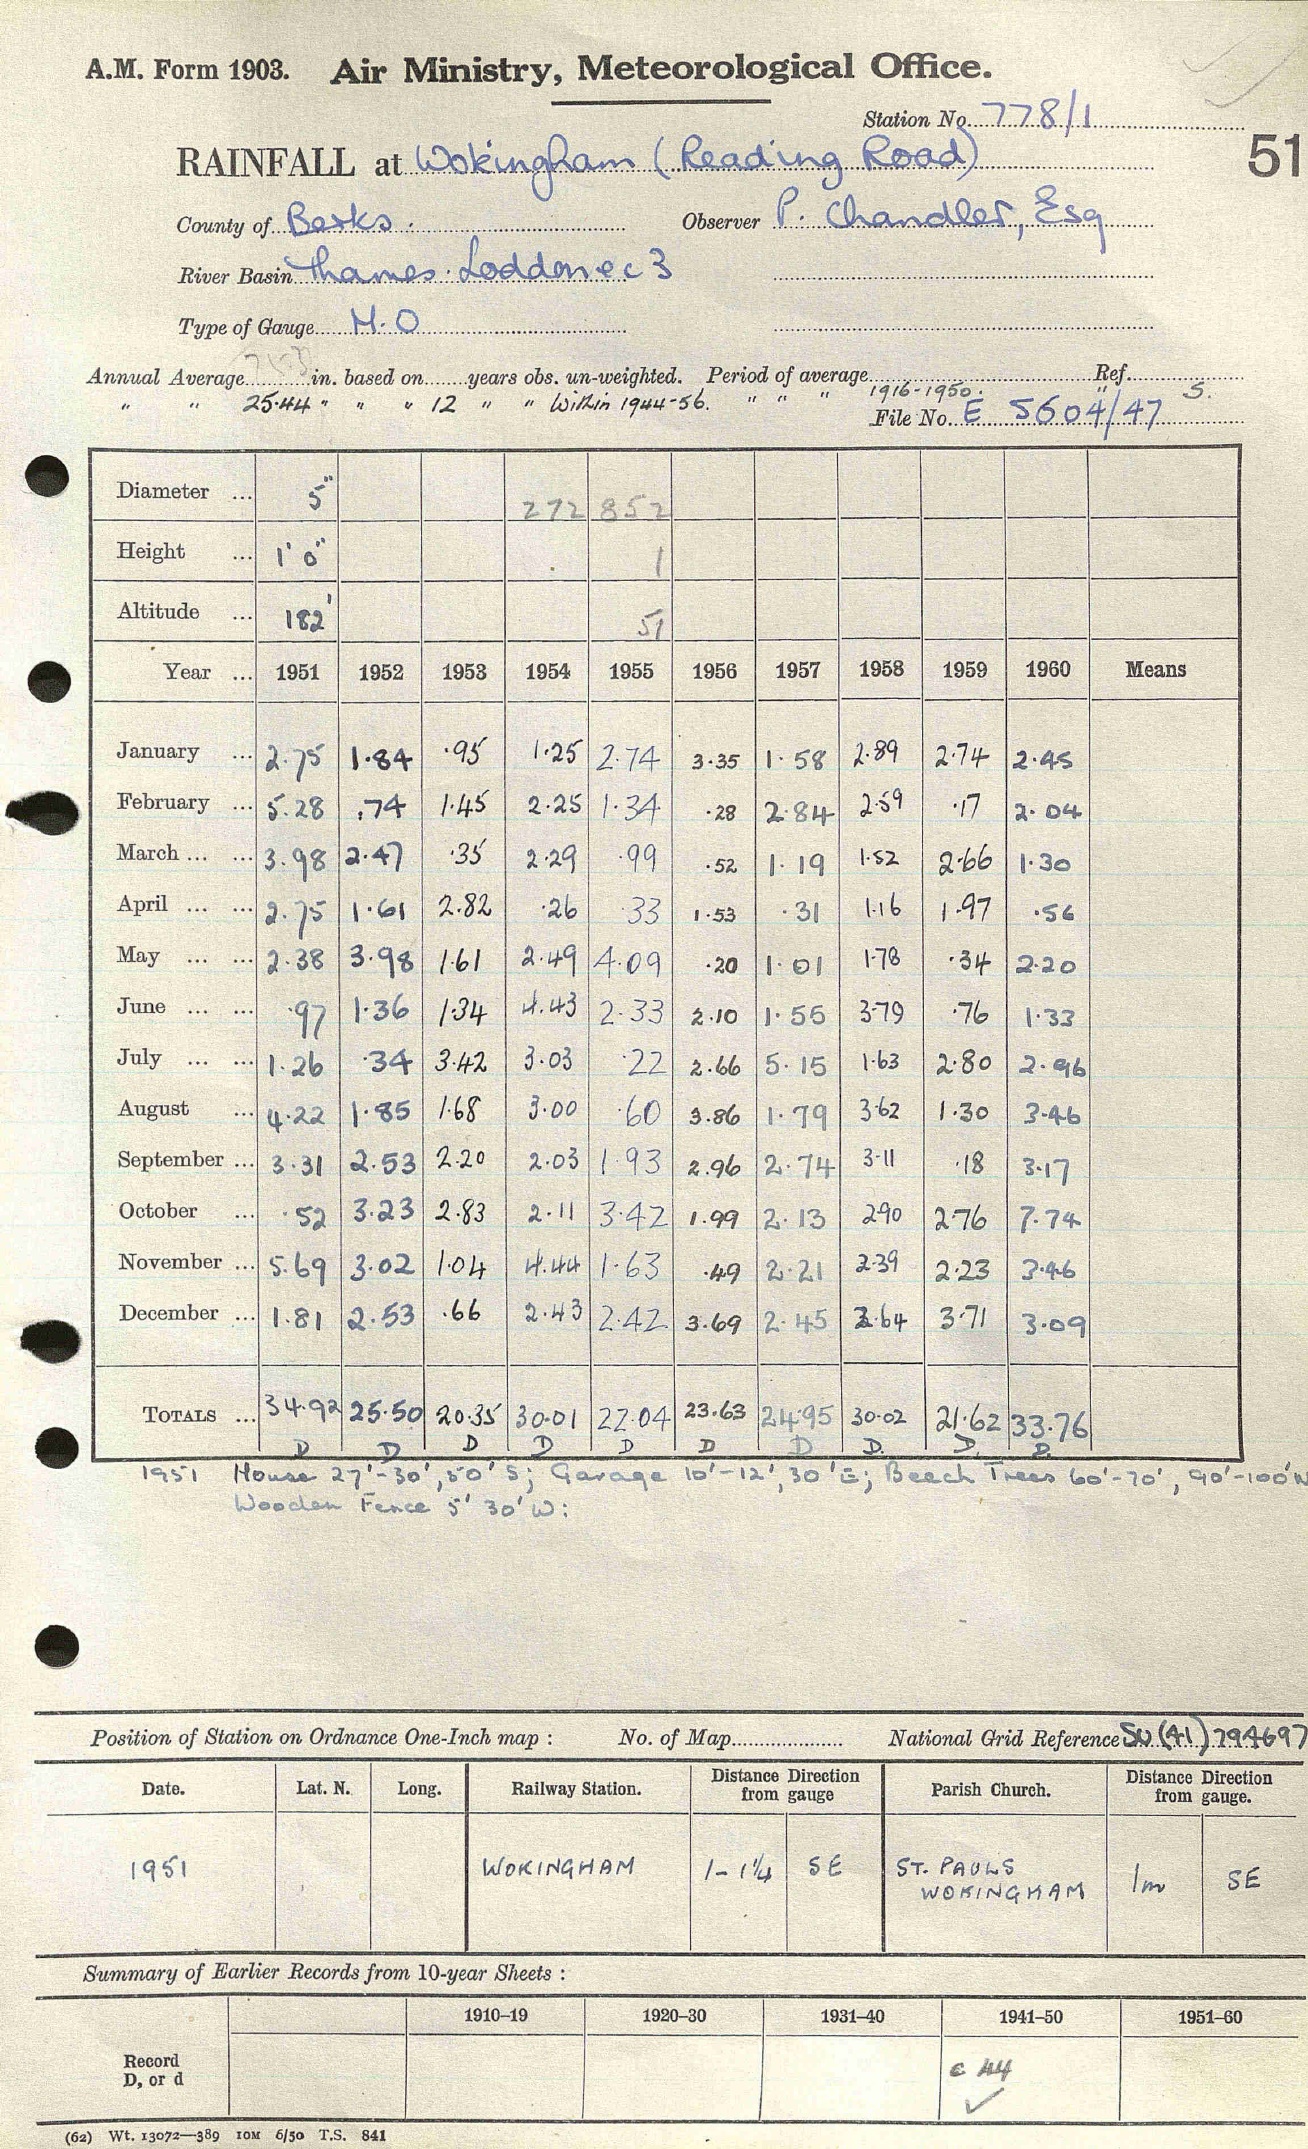 A.M. Form 1903. Air Ministry, Meteorological Office.
Station No. 778/1
51
RAINFALL at Wokingham (Reading Road)
County of Berks. Observer P. Chandler, Esq
River Basin Thames: Loddon ec 3
Type of Gauge M.O
Annual Average in. based on years obs. un-weighted. Period of average Ref.
" " 25.44 " " " 12 " " Within 1944-56. " " " 1916-1950. " S.
File No. E 5604/47
Diameter ... 5" 272 852
Height ... 1' 0" 1
Altitude ... 182' 51
Year ... 1951 1952 1953 1954 1955 1956 1957 1958 1959 1960 Means
January ... 2.75 1.84 .95 1.25 2.74 3.35 1.58 2.89 2.74 2.45
February ... 5.28 .74 1.45 2.25 1.34 .28 2.84 2.59 .17 2.04
March ... ... 3.98 2.47 .35 2.29 .99 .52 1.19 1.52 2.66 1.30
April ... ... 2.75 1.61 2.82 .26 .33 1.53 .31 1.16 1.97 .56
May ... ... 2.38 3.98 1.61 2.49 4.09 .20 1.01 1.78 .34 2.20
June ... ... .97 1.36 1.34 4.43 2.33 2.10 1.55 3.79 .76 1.33
July ... ... 1.26 .34 3.42 3.03 .22 2.66 5.15 1.63 2.80 2.96
August ... 4.22 1.85 1.68 3.00 .60 3.86 1.79 3.62 1.30 3.46
September ... 3.31 2.53 2.20 2.03 1.93 2.96 2.74 3.11 .18 3.17
October ... .52 3.23 2.83 2.11 3.42 1.99 2.13 2.90 2.76 7.74
November ... 5.69 3.02 1.04 4.44 1.63 .49 2.21 2.39 2.23 3.46
December ... 1.81 2.53 .66 2.43 2.42 3.69 2.45 2.64 3.71 3.09
TOTALS ... 34.92 25.50 20.35 30.01 22.04 23.63 24.95 30.02 21.62 33.76
D D D D D D D D. D. D.
1951 House 27'-30', 50' S; Garage 10'-12', 30' E; Beech Trees 60'-70', 90'-100' N
Wooden Fence 5' 30' W:
Position of Station on Ordnance One-Inch map : No. of Map National Grid Reference SU (41) 794697
Date. Lat. N. Long. Railway Station. Distance Direction from gauge Parish Church. Distance Direction from gauge.
1951 WOKINGHAM 1-1¼ SE ST. PAULS WOKINGHAM 1m SE
Summary of Earlier Records from 10-year Sheets :
1910–19 1920–30 1931–40 1941–50 1951–60
Record D, or d c 44 ✓
(62) Wt. 13072—389 10M 6/50 T.S. 841